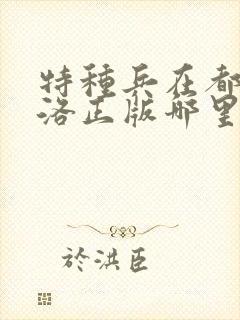 特種兵在都
洛正版哪里
於洪臣